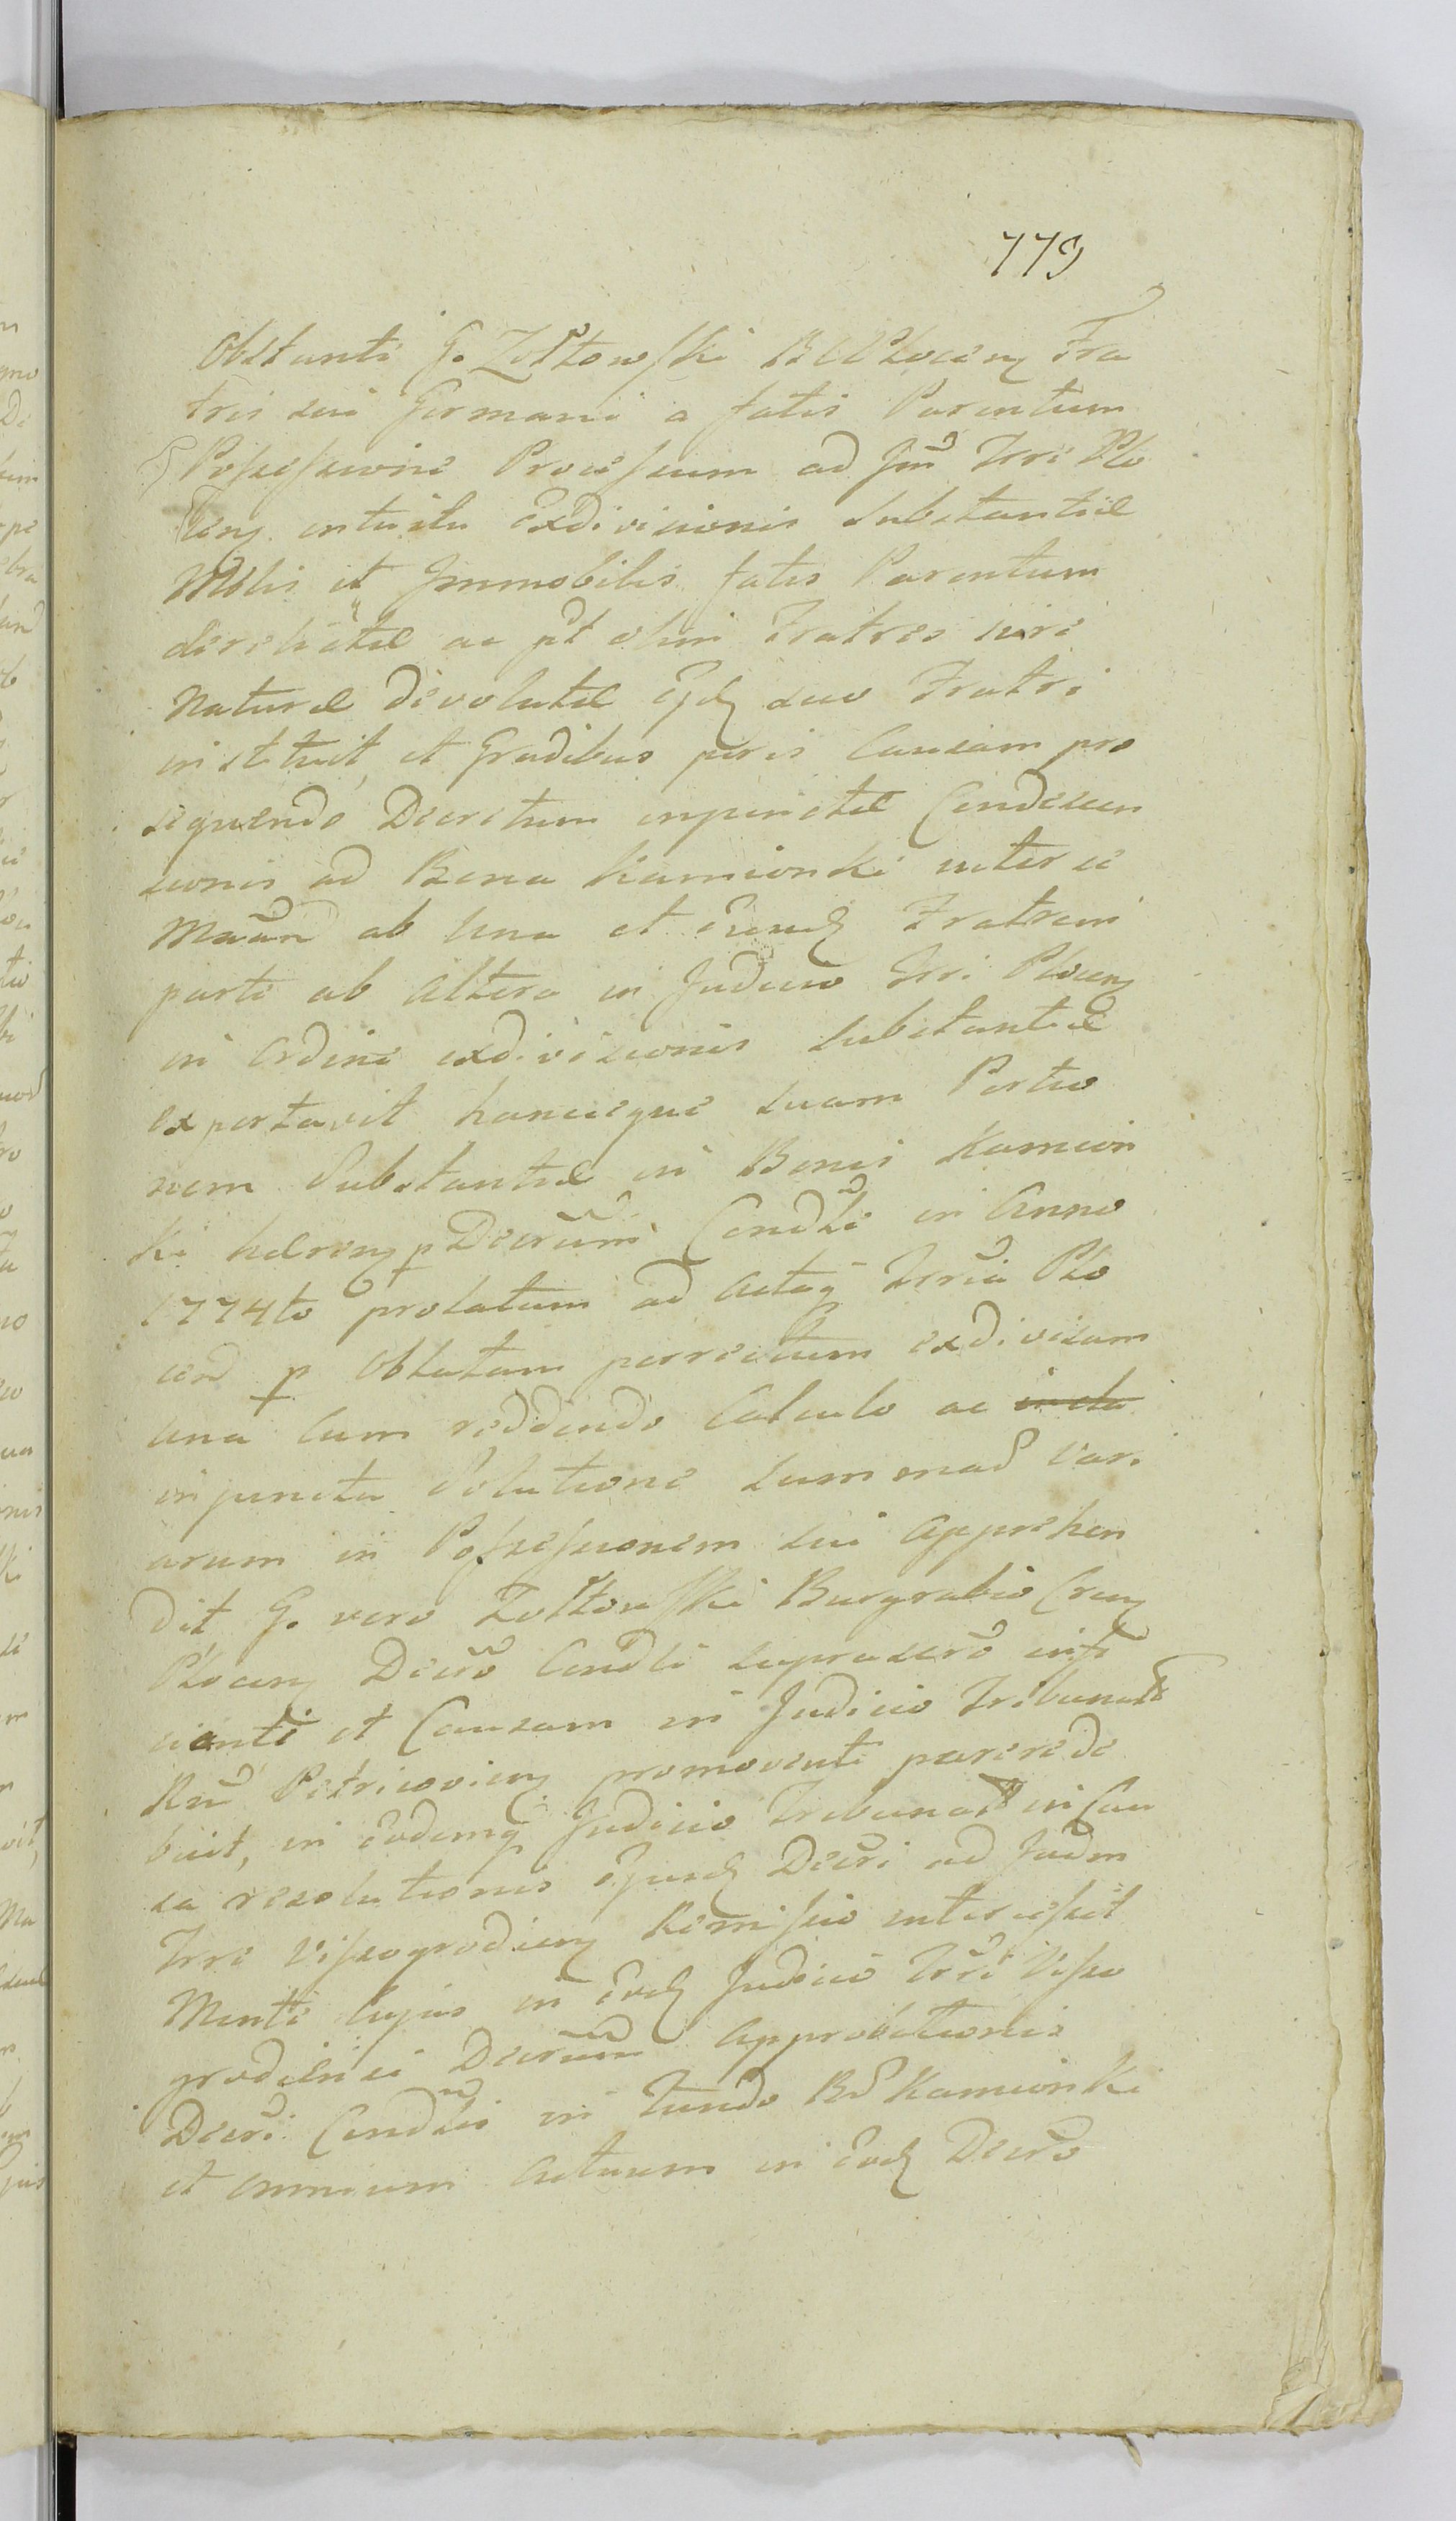 779
Obstanti G. Zołtowski BC Plocen Fra
tris sui Germani a fatis Parentum
Possessione Processum ad Jud Trre Plo
cen intuitu exdivisionis Substantiæ
Mblis et Immobilis fatis Parentum
derelictæ ac pt olim Fratres iure
Naturæ devolutæ suo Fratri
instituit, et Gradibus juris Causam pro
sequendo Decretum injunctæ Condescen
sionis ad Bona Kamionki inter se
ab una et Fratrem
parte ab altera in Judicio Trri Plocen
in Ordine exdivisionis Substantiæ
exportavit hancceque suam Portio
nem Substantiæ in Bonis Kamion
ki hæren p Decrum Condli in Anno
1774to prolatum ad Actaq Trria Plo
cen p Oblatam porrectum exdivisam
una Cum reddendo Calculo ac
injuncta Solutione Summaru Vari
arum in Possessionem sui Apprehen
dit G. vero Zołtowski Burgrabio Cren
Plocen Decro Condli suprascro insi
cianti et Causam in Judicio Tribunalis
Rni Petricovien promoventi parere de
buit, in eodemq Judicio Tribunalis in Cau
sa resolutionis ejusd Decri ad Judm
Trre Vissogrodien Remissio intercessit
Menti Cujus in eod Judicio Trri Visso
grodiensi Decrum Approbationis
Decri Condlis in Fundo B Kamionki
et omnium Actuum in eod Decro